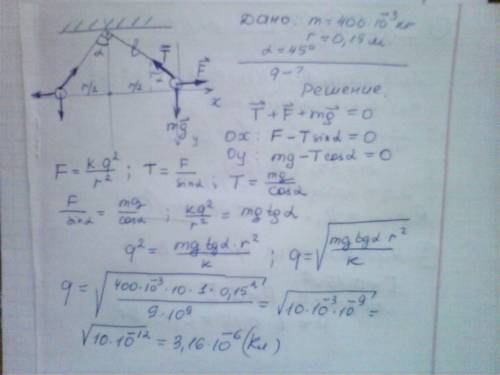 Дано: m = 400·10⁻³ кг
r = 0,15 м
α = 45°
q - ?
Решение
T⃗ + F⃗ + mg⃗ = 0
Ox: F - T sinα = 0
Oy: mg - T cosα = 0
α l T⃗ F⃗
r/2 r/2 x
mg⃗ y
F = kq²/r² ; T = F/sinα ; T = mg/cosα
F/sinα = mg/cosα ; kq²/r² = mg tgα
q² = mg tgα·r²/k ; q = √(mg tgα r²/k)
q = √(400·10⁻³·10·1·0,15²/9·10⁹) = √(10·10⁻³·10⁻⁹) =
√(10·10⁻¹²) = 3,16·10⁻⁶ (Кл)